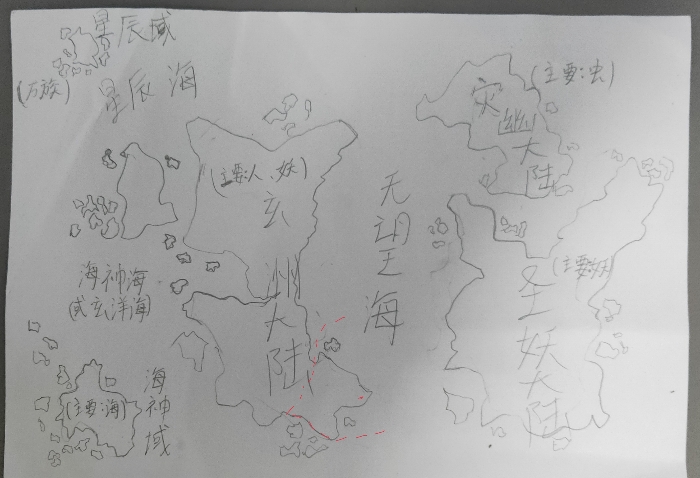 星辰域
(万族)
星辰海
(主要:虫)
灾幽大陆
(主要:人、妖)
玄洲大陆
无望海
(主要:妖)
圣妖大陆
海神海
(或玄洋海)
(主要:海)
海神域